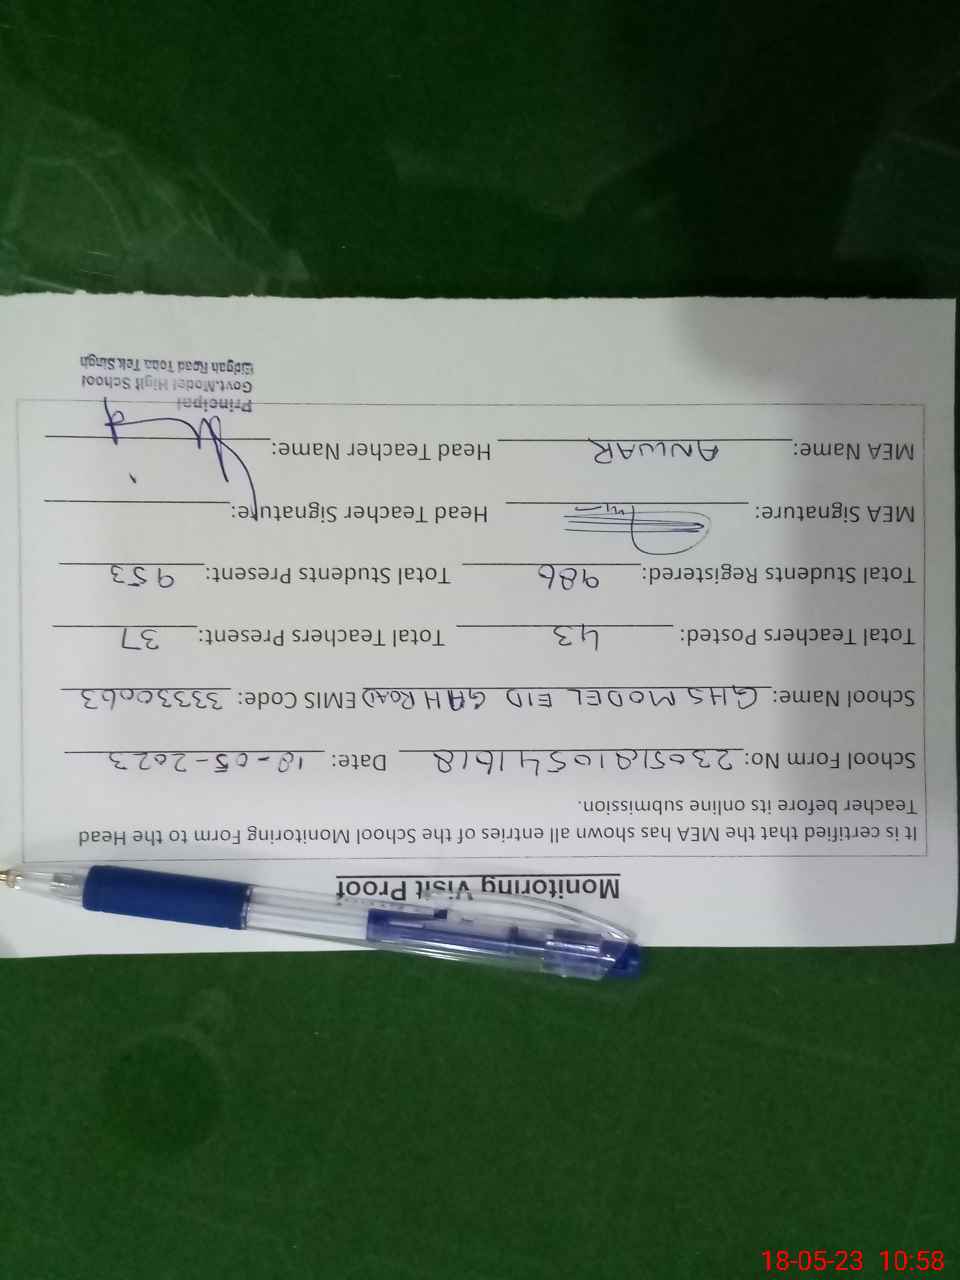 Monitoring Visit Proof
It is certified that the MEA has shown all entries of the School Monitoring Form to the Head
Teacher before its online submission.
School Form No: 230518105541618 Date: 18-05-2023
School Name: GHS MODEL EID GAH ROAD EMIS Code: 33330063
Total Teachers Posted: 43 Total Teachers Present: 37
Total Students Registered: 986 Total Students Present: 953
MEA Signature: Head Teacher Signature:
MEA Name: ANWAR Head Teacher Name:
Principal
Govt.Model High School
Eidgah Road Toba Tek Singh
18-05-23 10:58